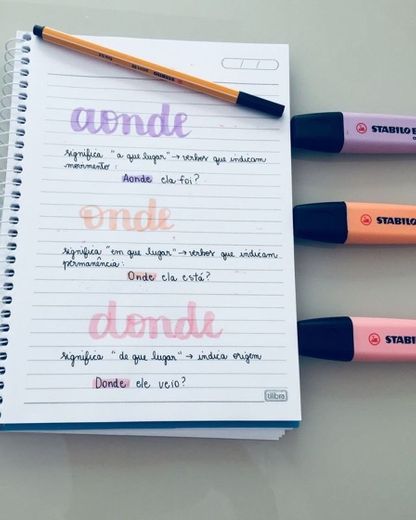 aonde
significa "a que lugar" → verbos que indicam
movimento :
Aonde ela foi?
onde
significa "em que lugar" → verbos que indicam
permanência :
Onde ela está?
donde
significa "de que lugar" → indica origem
Donde ele veio?
tilibra
STABILO
STABILO
STABILO